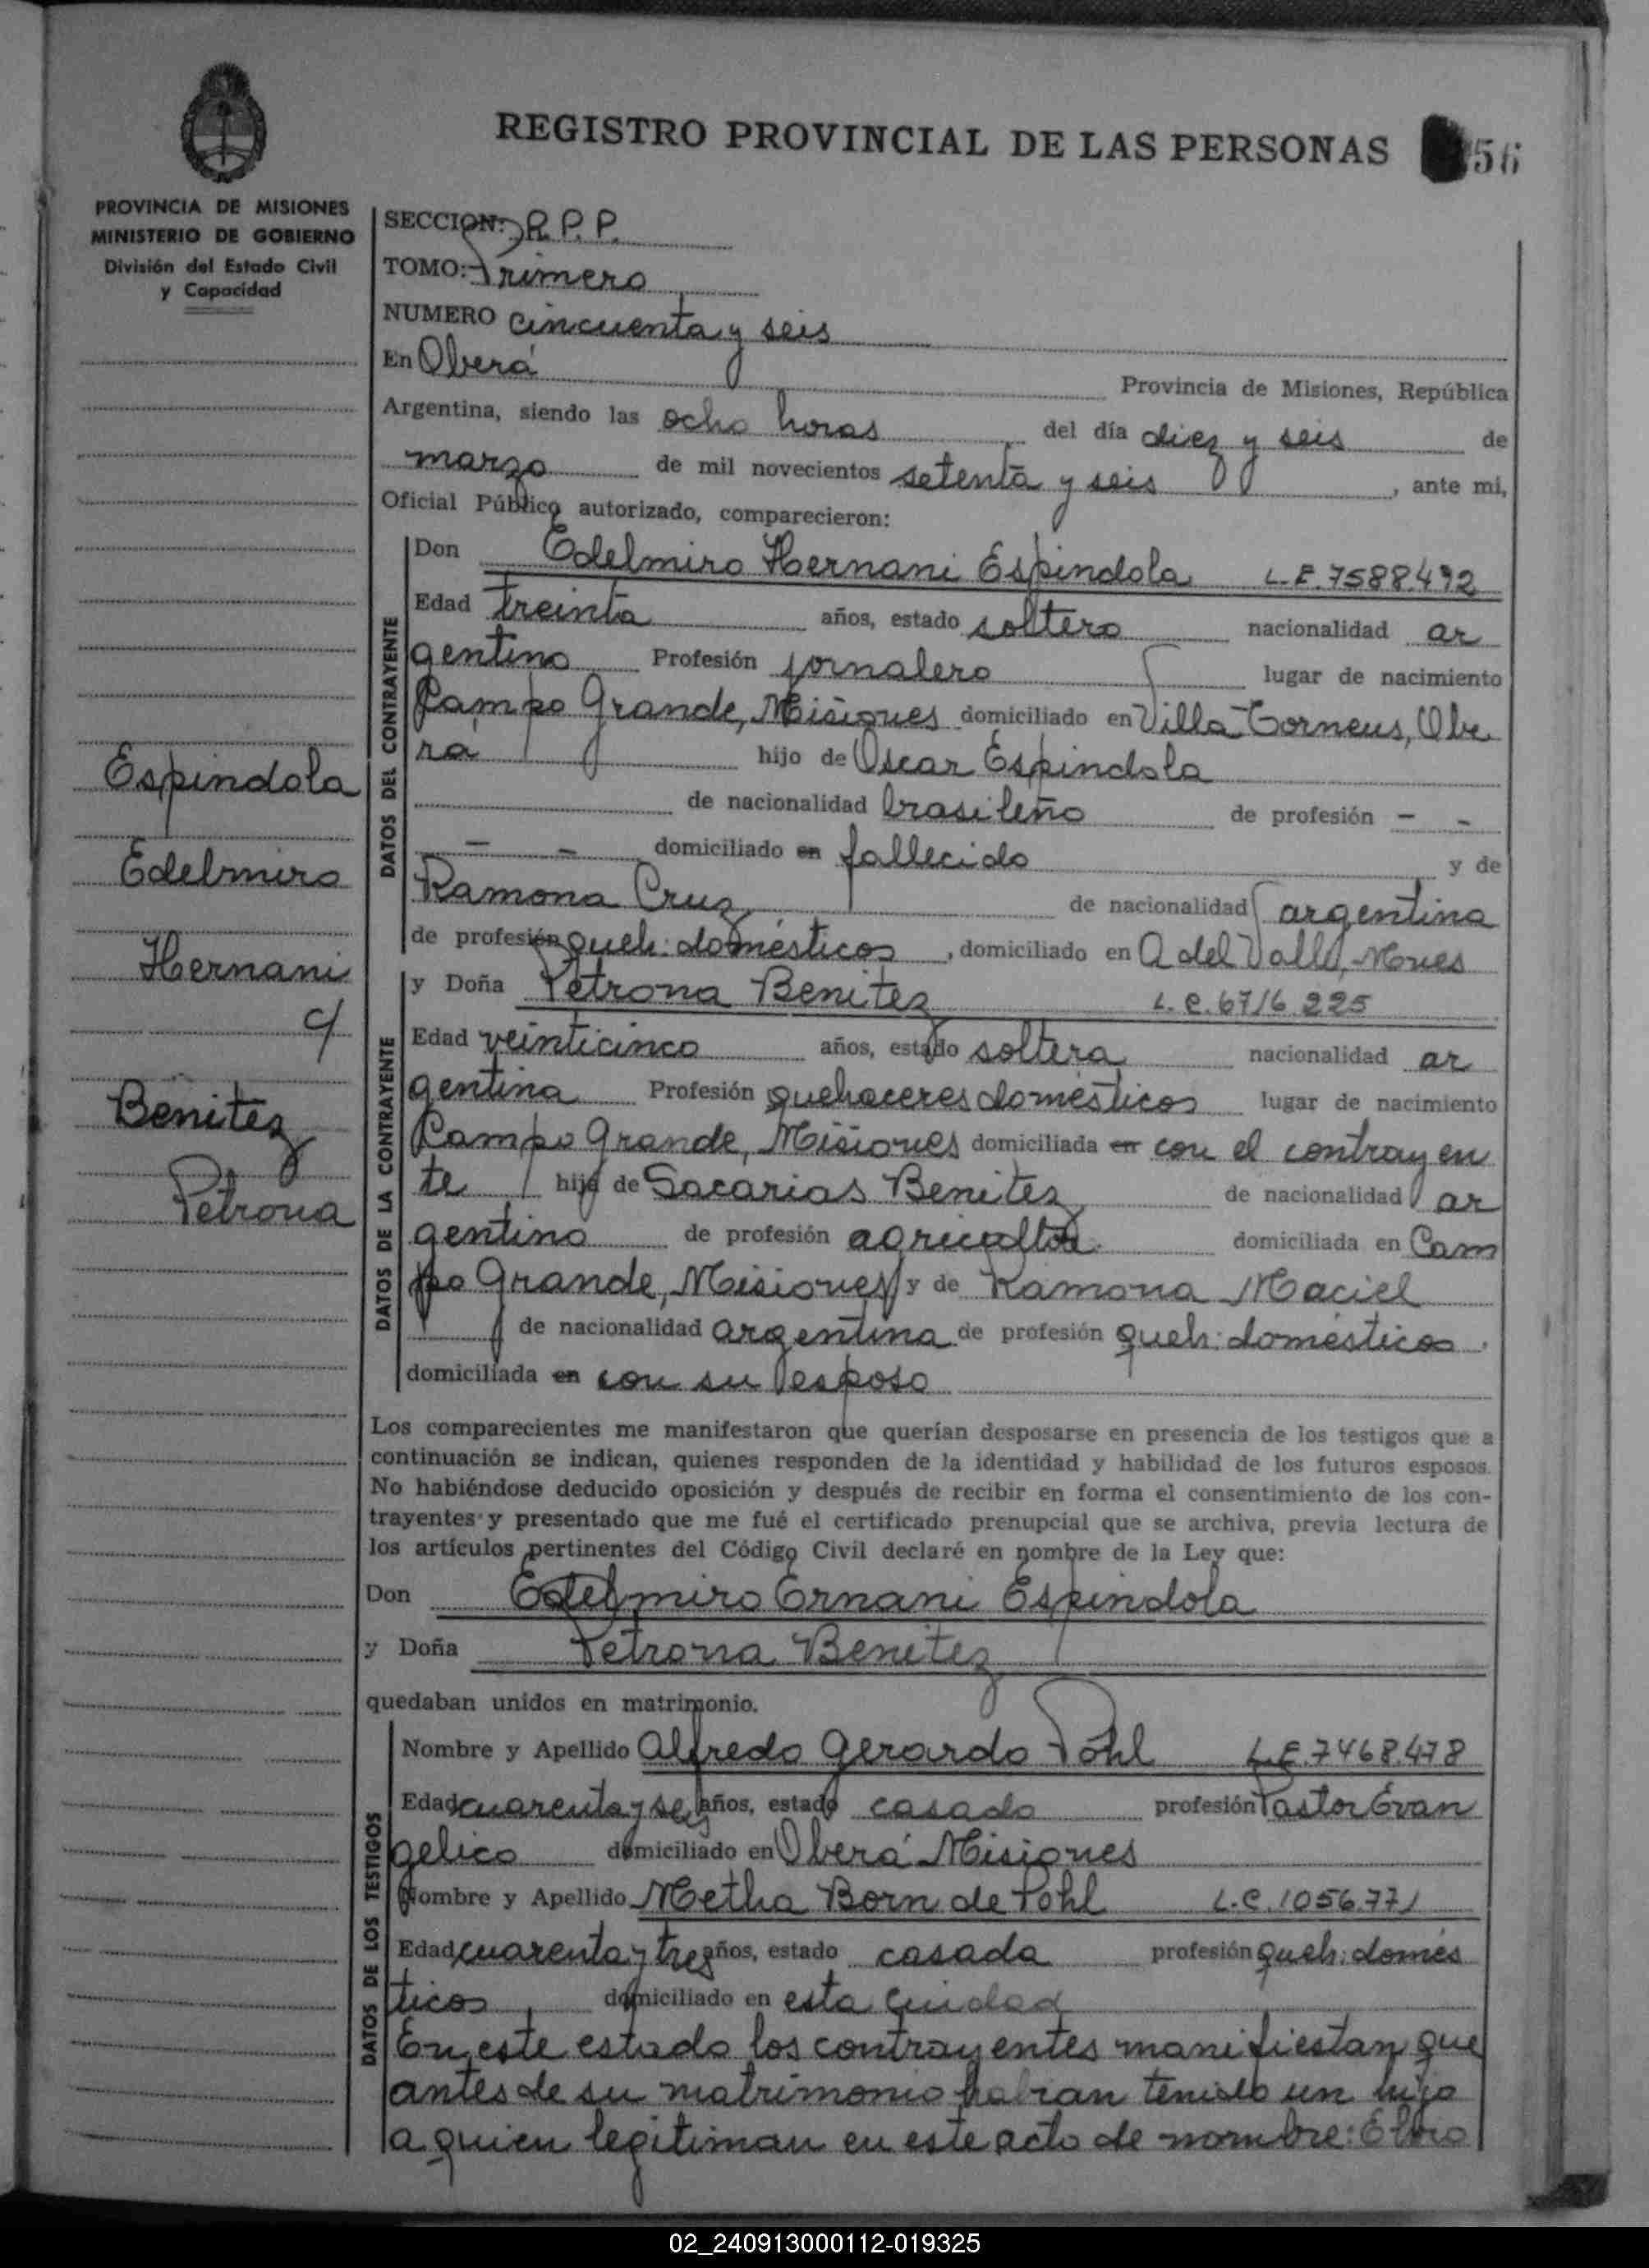 REGISTRO PROVINCIAL DE LAS PERSONAS
56
PROVINCIA DE MISIONES
MINISTERIO DE GOBIERNO
División del Estado Civil
y Capacidad
SECCION: R.P.P.
TOMO: Primero
NUMERO cincuenta y seis
En Oberá Provincia de Misiones, República
Argentina, siendo las ocho horas, del día diez y seis de
marzo de mil novecientos setenta y seis, ante mi,
Oficial Público autorizado, comparecieron:
DATOS DEL CONTRAYENTE
Don Edelmiro Hernani Espindola L.E. 7588.492
Edad treinta años, estado soltero nacionalidad ar
gentino Profesión jornalero lugar de nacimiento
Campo Grande, Misiones domiciliado en Villa Torneus, Obe
rá hijo de Oscar Espindola
de nacionalidad brasileño de profesión - -
- - domiciliado en fallecido y de
Ramona Cruz de nacionalidad argentina
de profesión queh: domésticos, domiciliado en A del Valle, Mnes
DATOS DE LA CONTRAYENTE
y Doña Petrona Benitez L.C. 6716.225
Edad veinticinco años, estado soltera nacionalidad ar
gentina Profesión quehaceres domésticos lugar de nacimiento
Campo Grande, Misiones domiciliada en con el contrayen
te hija de Sacarias Benitez de nacionalidad ar
gentino de profesión agricultor domiciliada en Cam
po Grande, Misiones y de Ramona Maciel
de nacionalidad argentina de profesión queh: domésticos.
domiciliada en con su esposo
Espindola
Edelmiro
Hernani
c/
Benitez
Petrona
Los comparecientes me manifestaron que querían desposarse en presencia de los testigos que a
continuación se indican, quienes responden de la identidad y habilidad de los futuros esposos.
No habiéndose deducido oposición y después de recibir en forma el consentimiento de los con-
trayentes y presentado que me fué el certificado prenupcial que se archiva, previa lectura de
los artículos pertinentes del Código Civil declaré en nombre de la Ley que:
Don Edelmiro Ernani Espindola
y Doña Petrona Benitez
quedaban unidos en matrimonio.
DATOS DE LOS TESTIGOS
Nombre y Apellido Alfredo Gerardo Pohl L.E. 7468.478
Edad cuarenta y seis años, estado casado profesión Pastor Évan
gelico domiciliado en Oberá Misiones
Nombre y Apellido Metha Born de Pohl L.C. 1056.771
Edad cuarenta y tres años, estado casada profesión queh: domés
ticos domiciliado en esta ciudad
En este estado los contrayentes manifiestan que
antes de su matrimonio habian tenido un hijo
a quien legitiman en este acto de nombre:
02_240913000112-019325